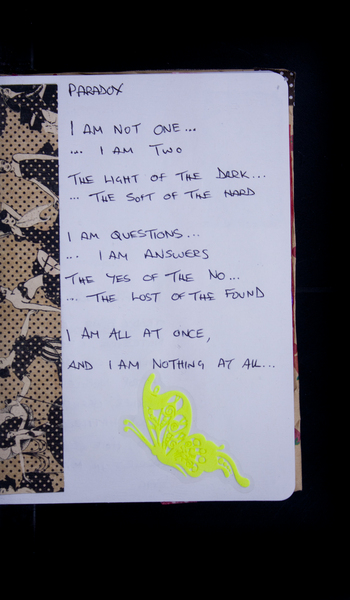 PARADOX
I AM NOT ONE...
... I AM TWO
THE LIGHT OF THE DARK...
... THE SOFT OF THE HARD
I AM QUESTIONS...
... I AM ANSWERS
THE YES OF THE NO...
... THE LOST OF THE FOUND
I AM ALL AT ONCE,
AND I AM NOTHING AT ALL...